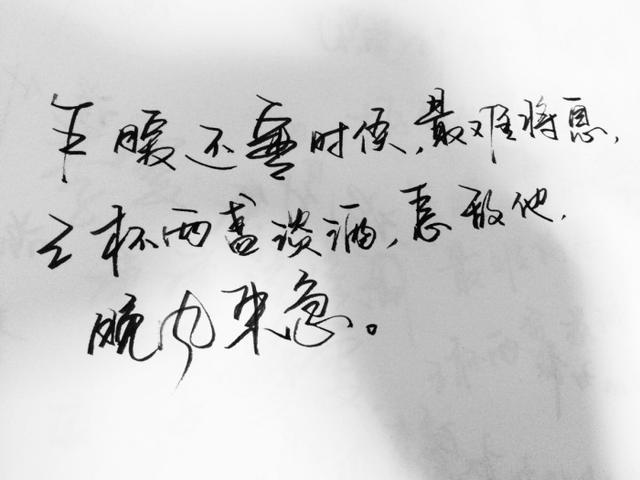 乍暖还寒时候,最难将息,
三杯两盏淡酒,怎敌他,
晚风来急。